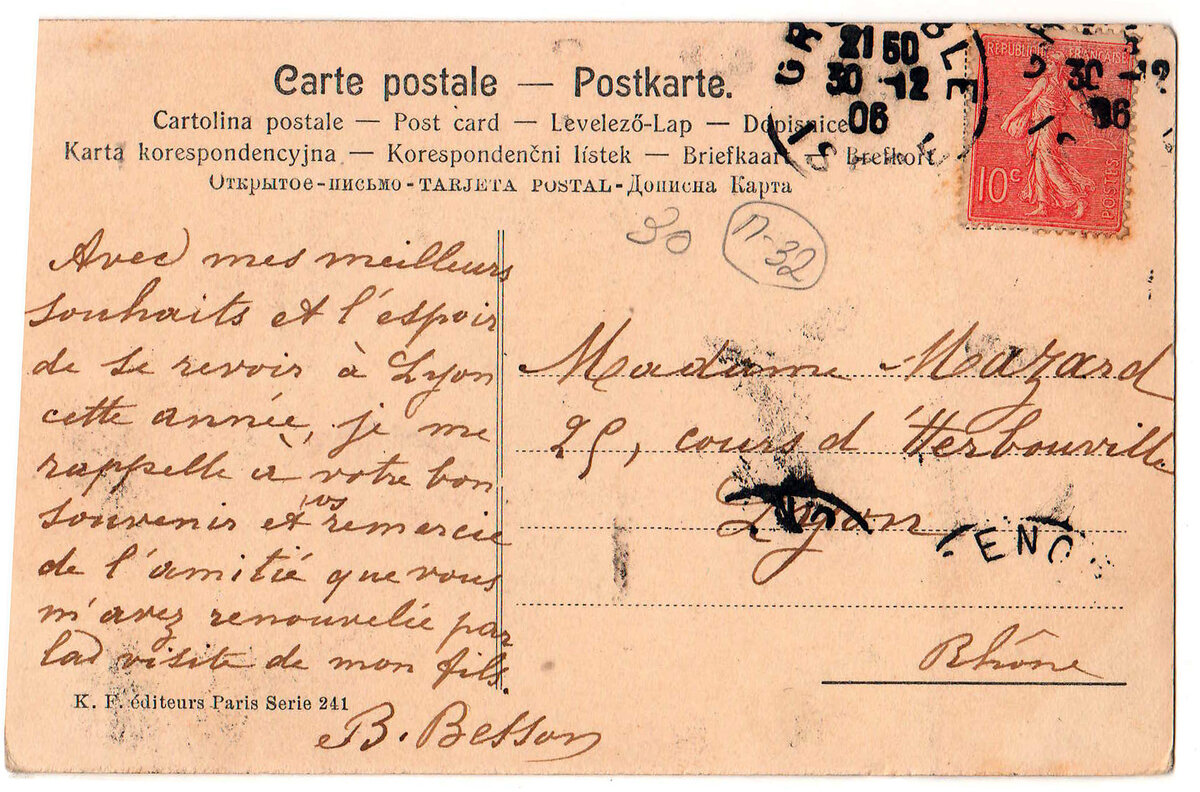 Carte postale — Postkarte.
Cartolina postale — Post card — Levelező-Lap — Dopisnice
Karta korespondencyjna — Korespondenční lístek — Briefkaart — Brefkort
Открытое-письмо-TARJETA POSTAL-Дописна Карта
21 50
30 -12
06
30 -12
06
RÉPUBLIQUE FRANÇAISE
10 c
POSTES
30
П-32
Avec mes meilleurs
souhaits et l'espoir
de se revoir à Lyon
cette année, je me
rappelle à votre bon
souvenir et vous remercie
de l'amitié que vous
m'avez renouvelée par
la visite de mon fils.
B. Besson
Madame Mazard
25, cours d'Herbouville
Lyon
Rhône
K. F. éditeurs Paris Serie 241